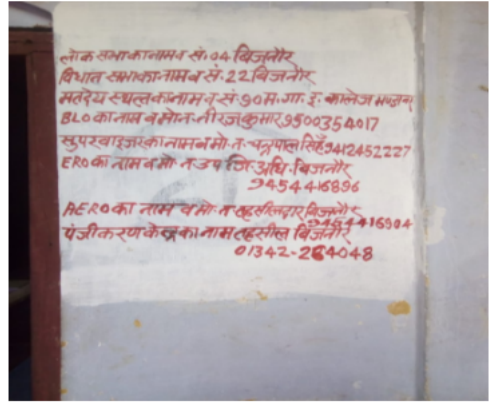 लोक सभा का नाम व सं: 04 बिजनौर
विधान सभा का नाम व सं: 22 बिजनौर
मतदेय स्थल का नाम व सं: 90 म. गा. इ. कालेज
BLO का नाम व मो. न. नीरज कुमार 9500354017
सुपरवाइजर का नाम व मो. न. चन्द्रपाल सिंह 9412452227
ERO का नाम व मो. न. उप जि. अधि. बिजनौर
9454416896
AERO का नाम व मो. न. तहसीलदार बिजनौर
9454416904
पंजीकरण केन्द्र का नाम तहसील बिजनौर
01342-264048